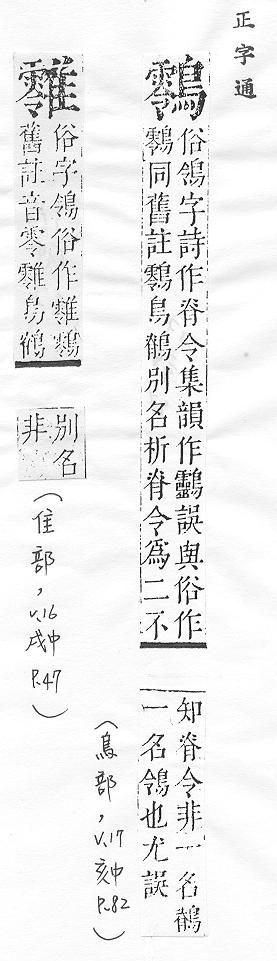 正字通
鸖
俗鴒字詩作脊令集韻作鸖誤與俗作
鸖同舊註鸖鳥鶺別名析脊令為二不
知脊令非一名鶺
一名鴒也尤誤
(鳥部,v.17
亥中
P.82)
俗字鴒俗作䨩鸖
舊註音零䨩鳥鶺
別名
非
(隹部,
v.16
戌中
P.47)